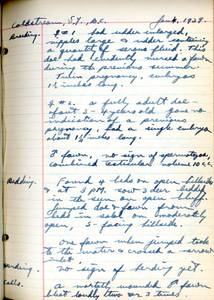 Coldstream, S.I., B.C. Jan 6, 1939
Breeding. ♀ #1 had udder enlarged,
nipples large & udder containing
a quantity of serous fluid. This
doe had evidently nursed a fawn
during the previous summer.
Twin pregnancy, embryos
1½ inches long.
♀ #2. a full adult doe
but showed
indication of a previous
pregnancy, had a single embryo
about 1¼ inches long.
♂ fawn, no sign of spermatozoa,
combined testicular volume 10 c.c.
Bedding. Found 4 beds on open hillside
& at 3 P.M. saw 3 deer bedded
in the sun on open bluff.
Jumped doe & fawn from
beds in salal on moderately
open, S-facing hillside.
One fawn when jumped took
to the water & crossed a narrow
Herding. no sign of herding yet.
Calls. a mortally wounded ♂ fawn
bleat loudly two or 3 times.